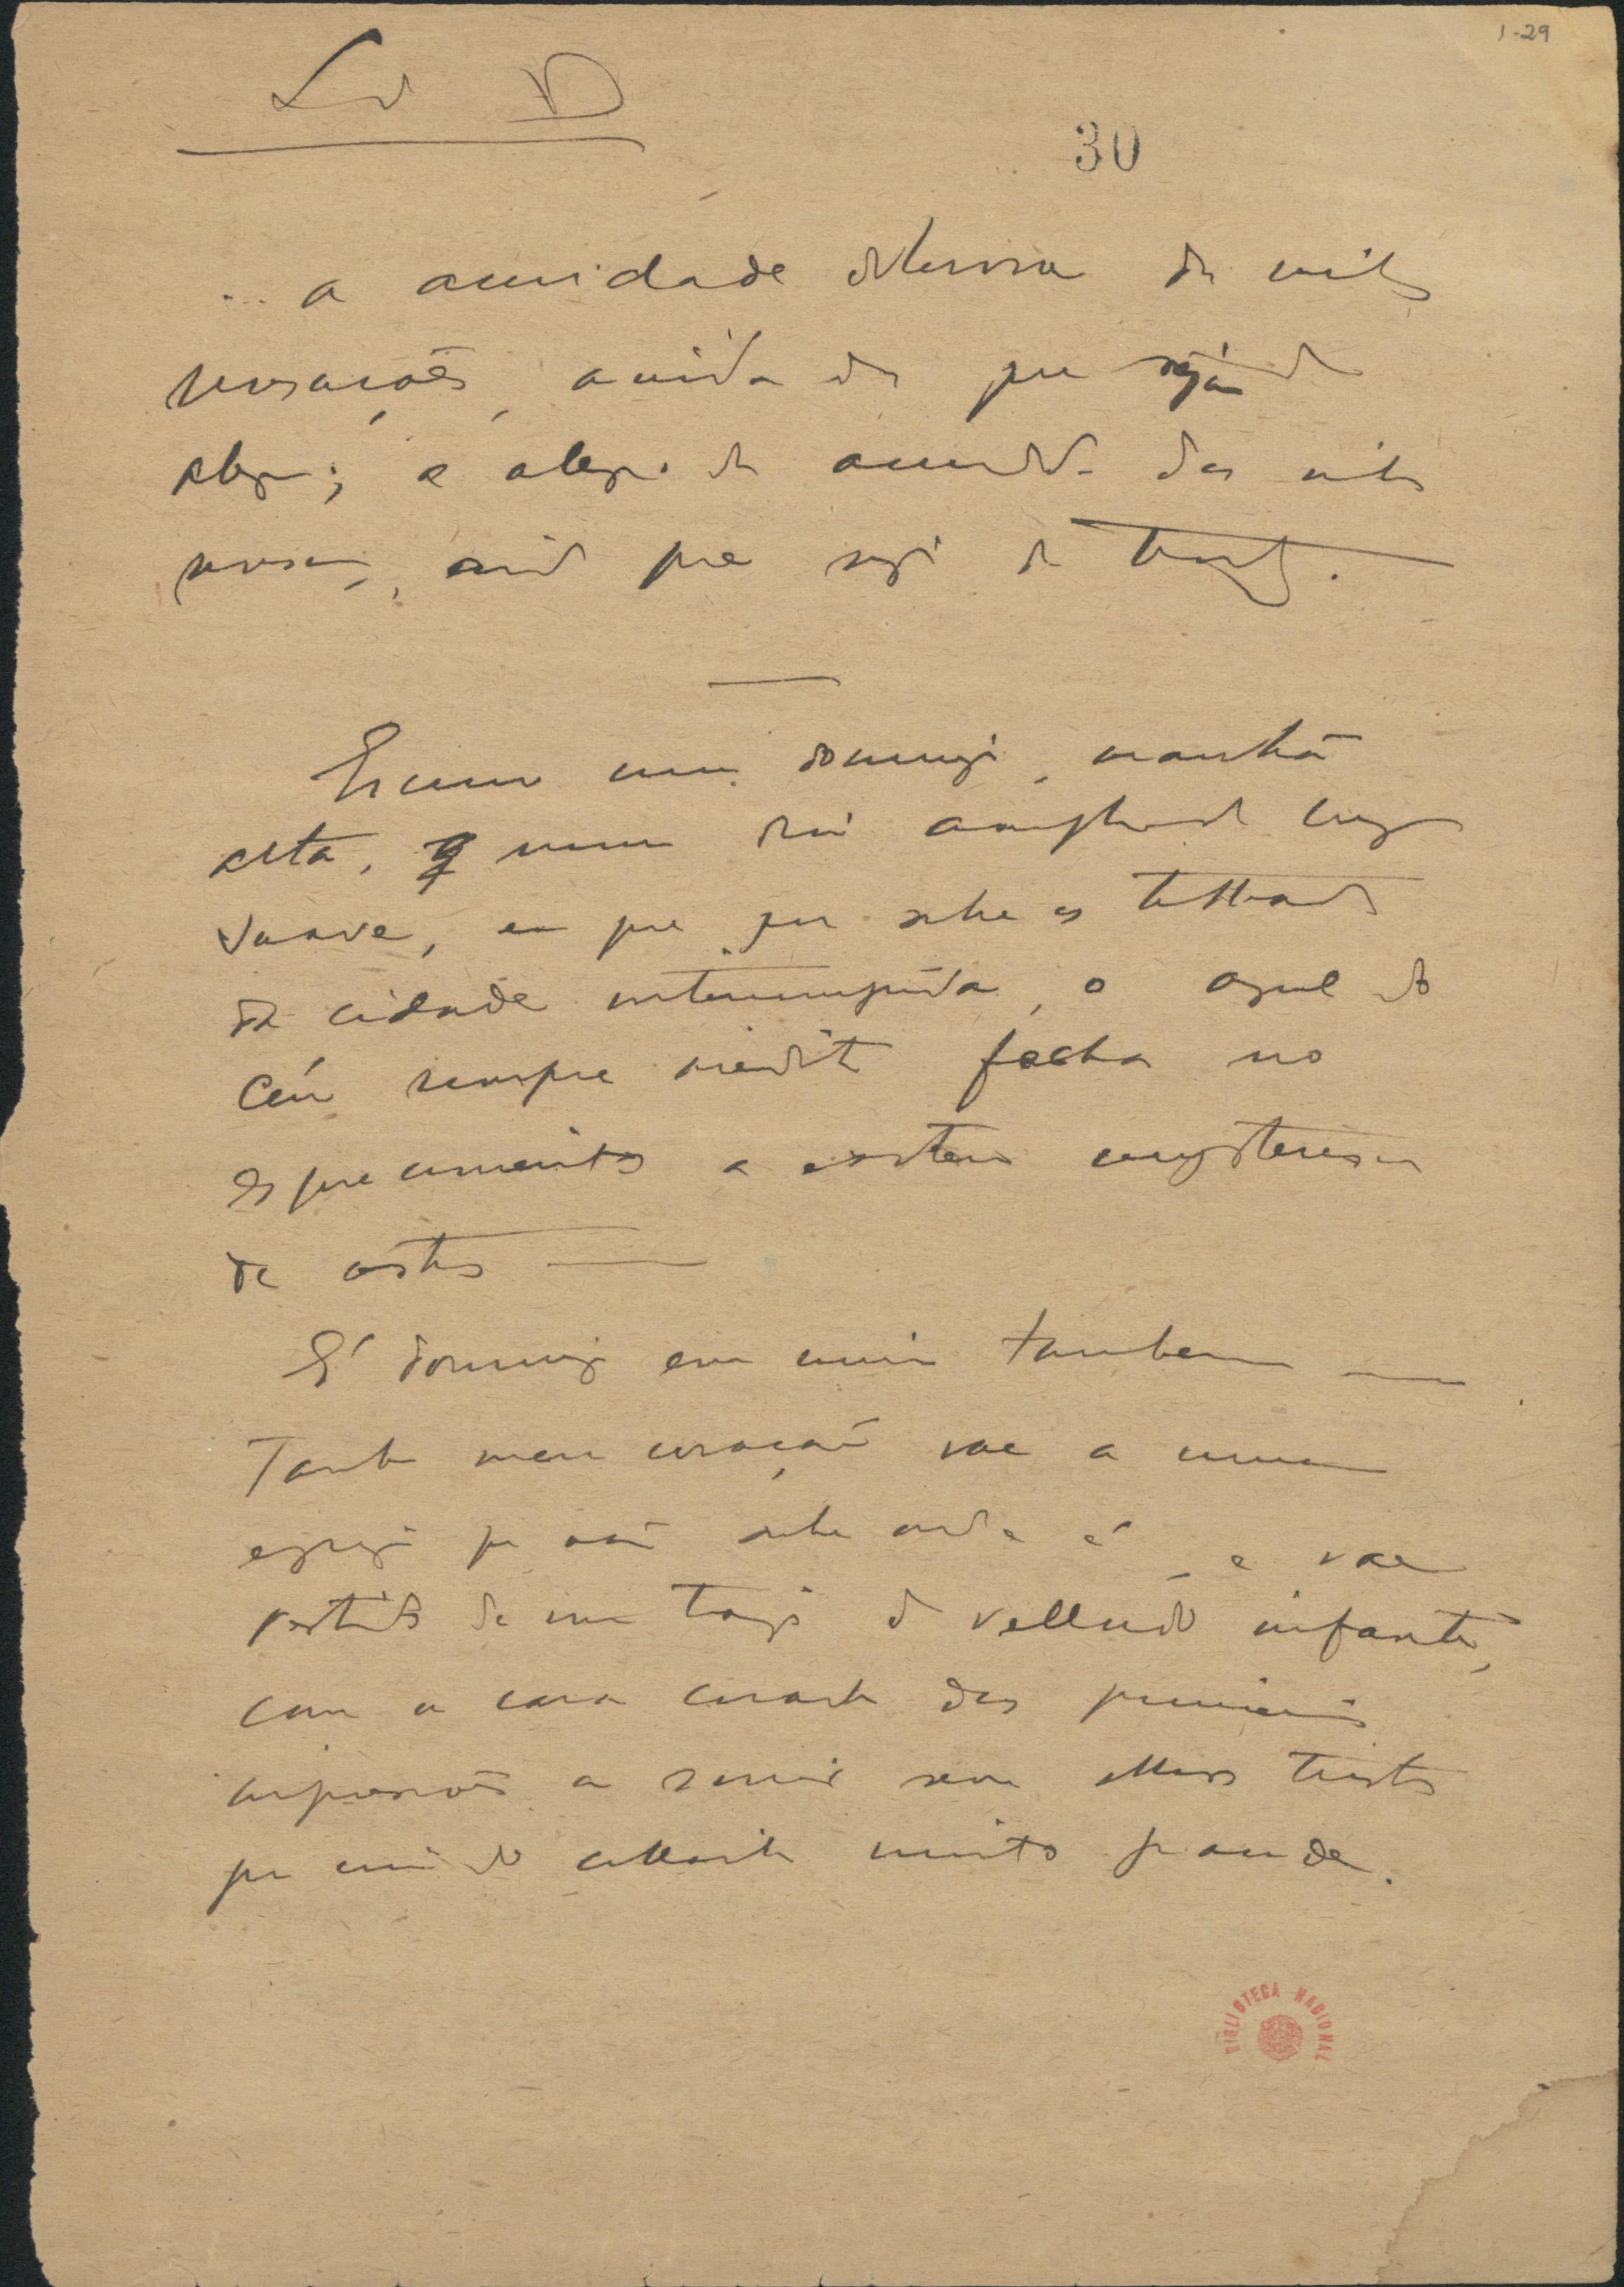 L. do D.
1-29
30
... a acuidade dolorosa das minhas
sensações, ainda das que sejam de
alegria; a alegria da acuidade das minhas
sensações, ainda que sejam de tristeza.
Escrevo num domingo, manhã
alta, q num dia amplo de luz
suave, em que, por sobre os telhados
da cidade interrompida, o azul do
céu sempre inedito fecha no
esquecimento a existencia mysteriosa
de astros —
É domingo em mim tambem —
Tambem meu coração vae a uma
egreja que não sabe onde é, e vae
vestido de um traje de velludo infante,
com a cara corada das primeiras
impressões a sorrir sem olhos tristes
por cima do collarinho muito grande.
BIBLIOTECA NACIONAL